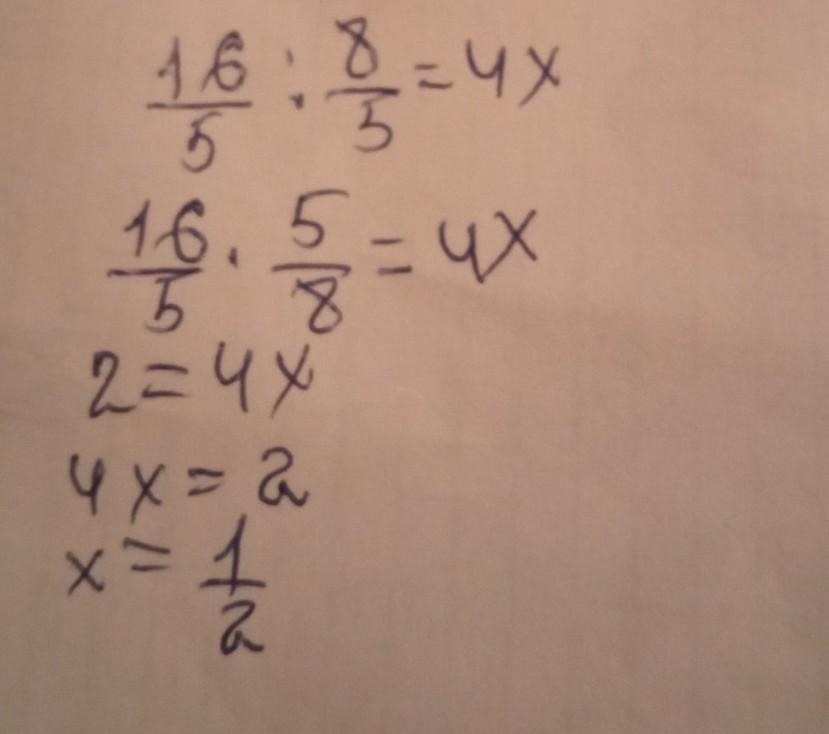 16/5 : 8/5 = 4x
16/5 · 5/8 = 4x
2 = 4x
4x = 2
x = 1/2